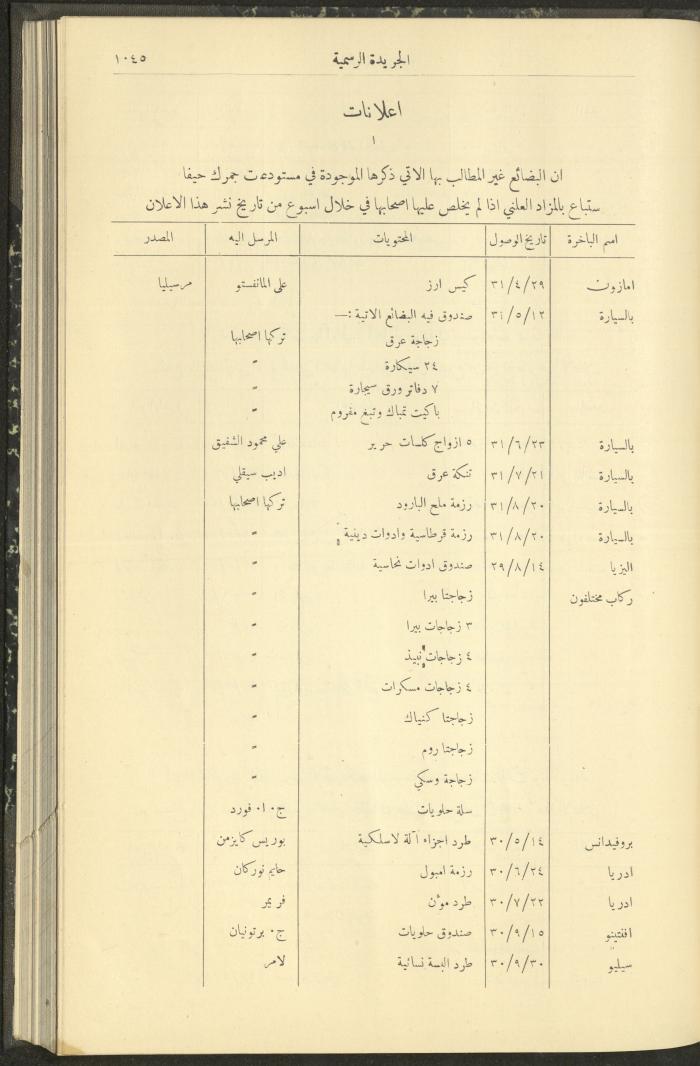 الجريدة الرسمية ١٠٤٥
اعلانات
١
ان البضائع غير المطالب بها الاتي ذكرها الموجودة في مستودعت جمرك حيفا
ستباع بالمزاد العلني اذا لم يخلص عليها اصحابها في خلال اسبوع من تاريخ نشر هذا الاعلان
اسم الباخرة تاريخ الوصول المحتويات المرسل اليه المصدر
امازون ٣١/٤/٢٩ كيس ارز على المانفستو مرسيليا
بالسيارة ٣١/٥/١٢ صندوق فيه البضائع الاتية :—
زجاجة عرق تركها اصحابها
٢٤ سيكارة "
٧ دفاتر ورق سيجارة "
باكيت تمباك وتبغ مفروم "
بالسيارة ٣١/٦/٢٣ ٥ ازواج كلسات حرير علي محمود الشفيق
بالسيارة ٣١/٧/٢١ تنكة عرق اديب سيقلي
بالسيارة ٣١/٨/٢٠ رزمة ملح البارود تركها اصحابها
بالسيارة ٣١/٨/٢٠ رزمة قرطاسية وادوات دينية "
اليزيا ٢٩/٨/١٤ صندوق ادوات نحاسية "
ركاب مختلفون زجاجتا بيرا "
٣ زجاجات بيرا "
٤ زجاجات نبيذ "
٤ زجاجات مسكرات "
زجاجتا كنياك "
زجاجتا روم "
زجاجة وسكي "
سلة حلويات ج٠ ا٠ فورد
بروفيدانس ٣٠/٥/١٤ طرد اجزاء آلة لاسلكية بوريس كايزمن
ادريا ٣٠/٦/٢٤ رزمة امبول حايم نوركان
ادريا ٣٠/٧/٢٢ طرد موٴن فريمر
افنتينو ٣٠/٩/١٥ صندوق حلويات ج٠ برتونيان
سيليو ٣٠/٩/٣٠ طرد البسة نسائية لامر